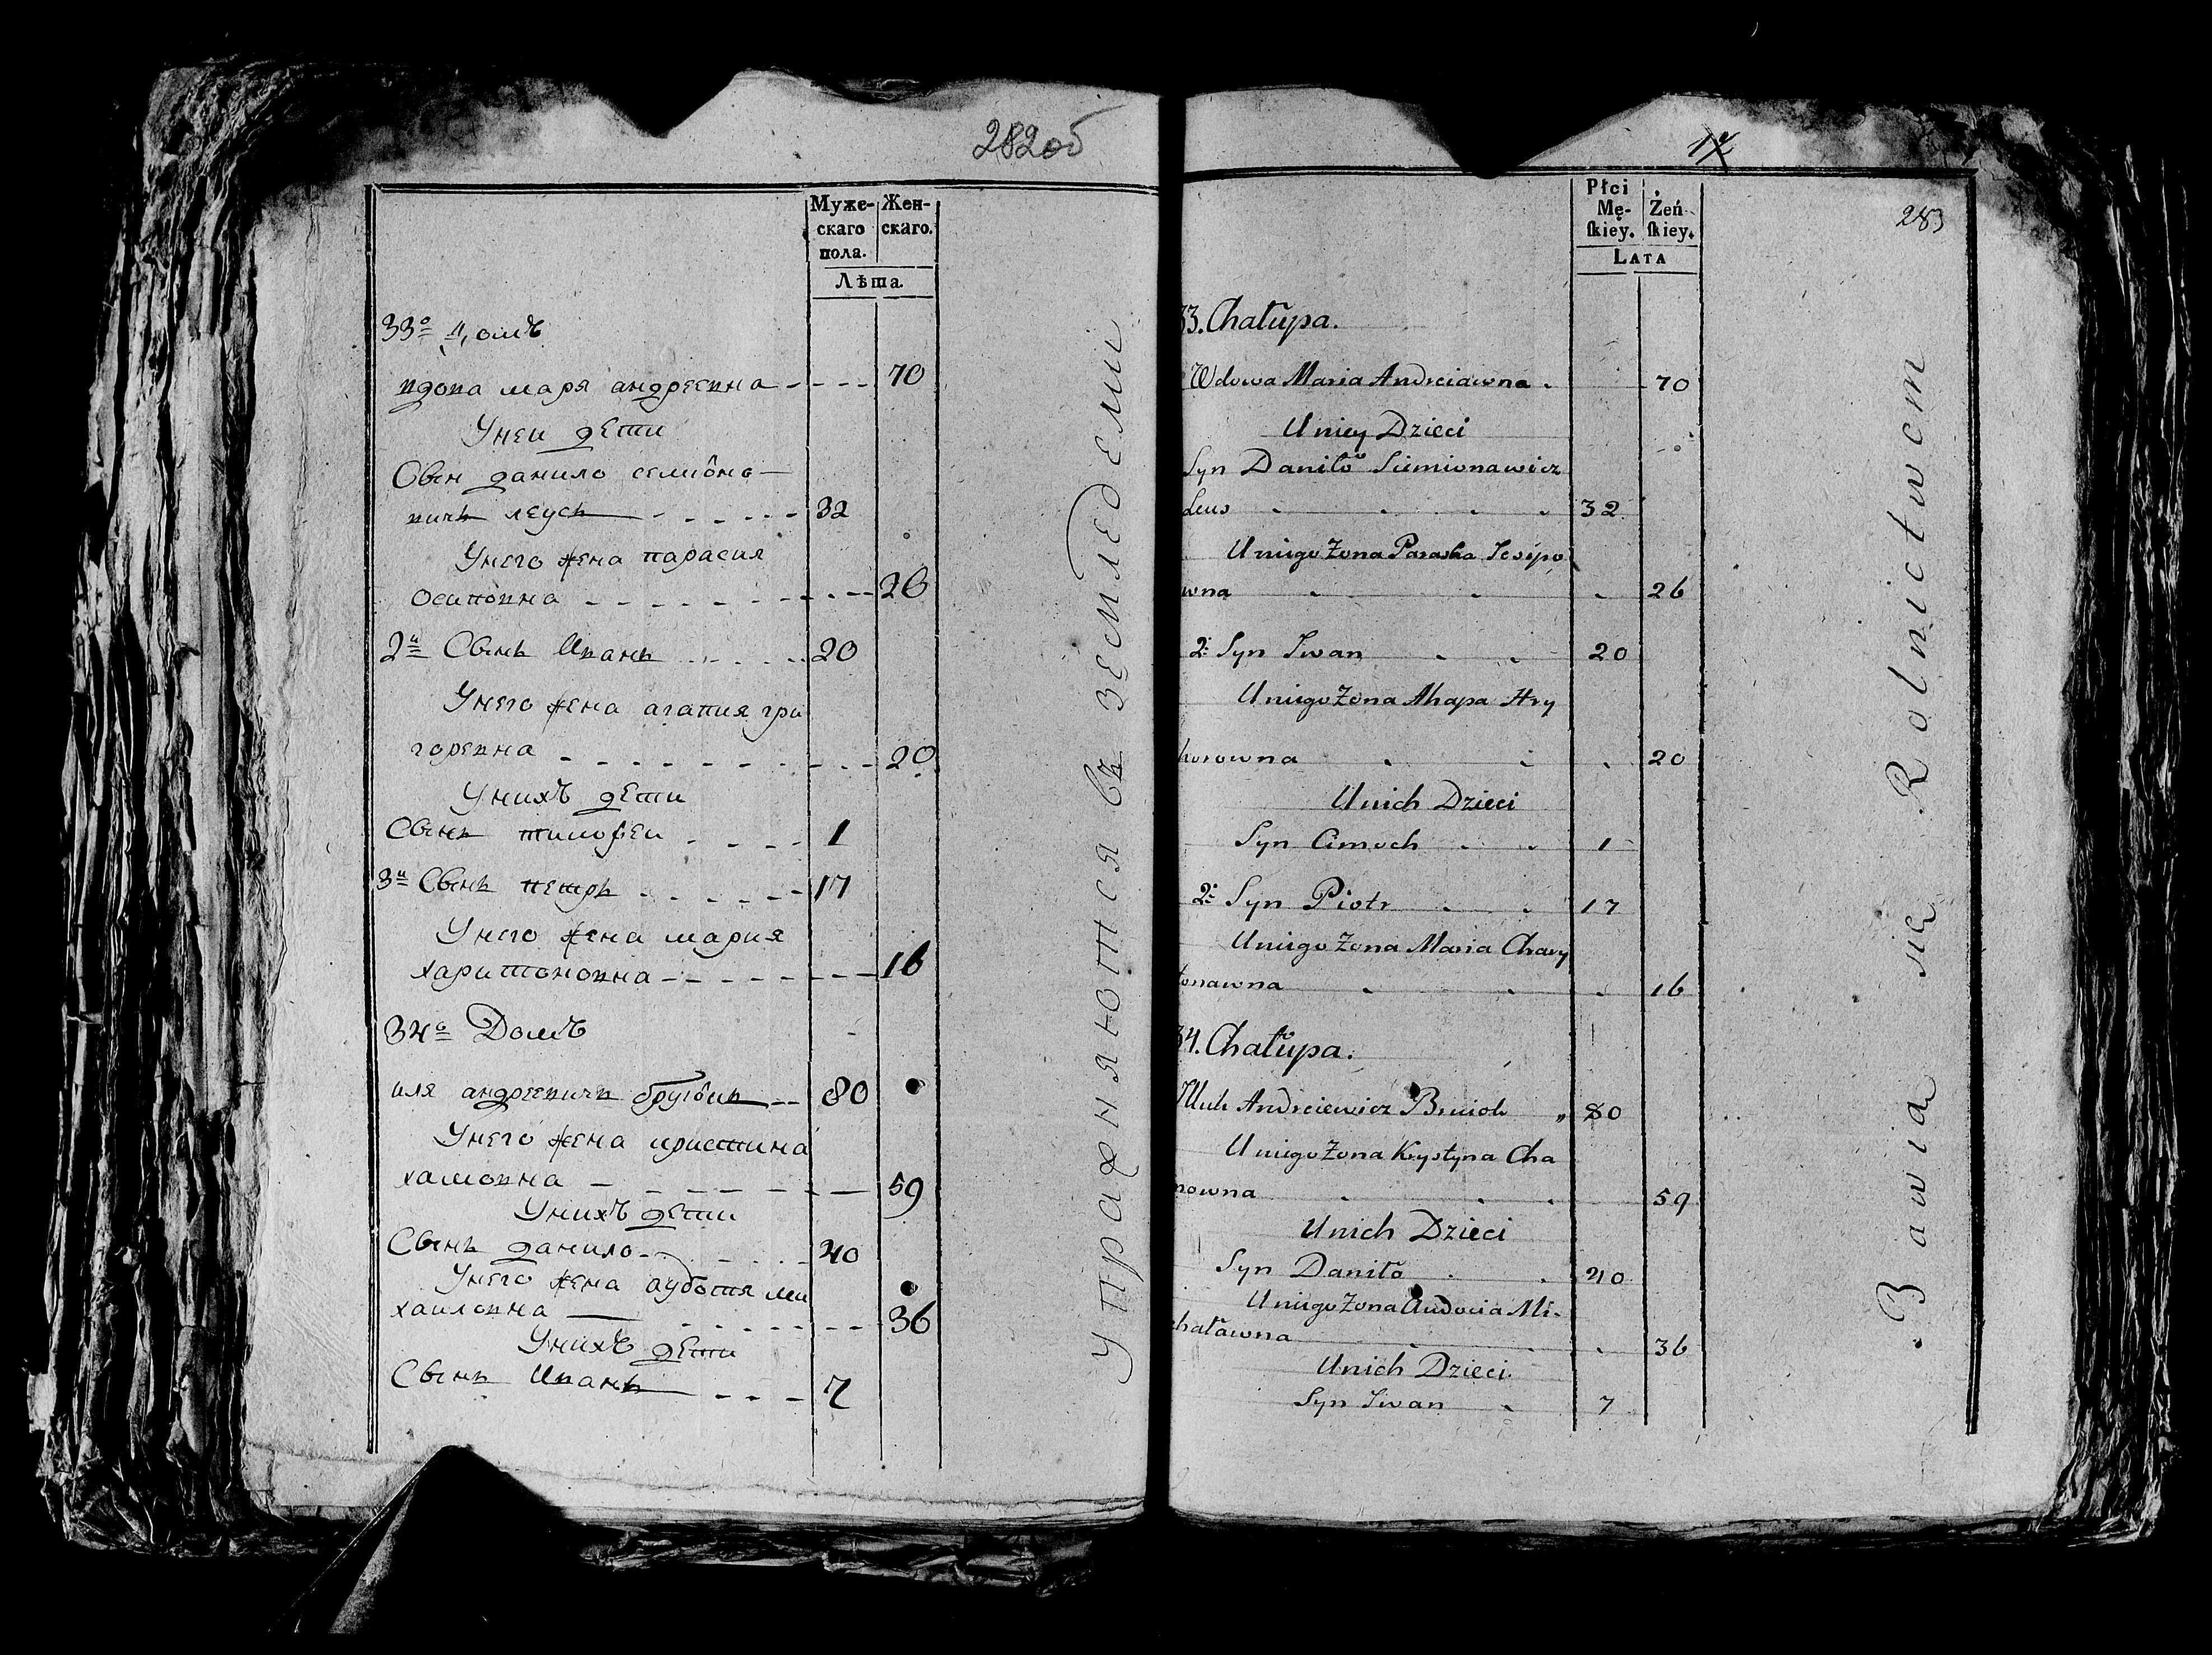 282об
Муже-
скаго
пола.
Жен-
скаго.
Лѣта.
33º Домъ
вдова маря андреевна - - - - 70
Унеи дети
Сынъ данило семiоно-
вичъ леусъ - - - - - - 32
Унего жена парасия
осиповна - - - - - - - - - - 26
2й Сынъ Иванъ - - - - - 20
Унего жена агапия гри
горевна - - - - - - - - - - 20
Унихъ дети
Сынъ тимофеи - - - - 1
3й Сынъ петръ - - - - - - 17
Унего жена мария
харитоновна - - - - - - - - - 16
34º Домъ
иля андреевичъ - - 80
Унего жена христина
хамовна - - - - - - - - 59
Унихъ дети
Сынъ данило - - - - - 40
Унего жена аудотя ми
хаиловна - - - - - - - - 36
Унихъ дети
Сынъ Иванъ - - - 7
упрафняются въ земледелии
17
283
Płci
Mę-
skiey.
Żeń-
skiey.
LATA
33. Chałupa.
Wdowa Maria Andreiawna . 70
Uniey Dzieci
Syn Daniło Siemionawicz
Leus . . . . . 32
Uniego Zona Paraska Josipo
wna . . . 26
2: Syn Iwan . . 20
Uniego Zona Ahapa Hry
horowna . . . 20
Unich Dzieci
Syn Cimoch . . 1
2: Syn Piotr . . 17
Uniego Zona Maria Chary
tonawna . . . 16
34. Chałupa.
Andreiewicz „ 80
Uniego Zona Krystyna Cha
mowna . . . 59
Unich Dzieci
Syn Daniło . . 40
Uniego Zona Audocia Mi-
chaławna . . . 36
Unich Dzieci
Syn Iwan . 7
Bawią się Rolnictwem